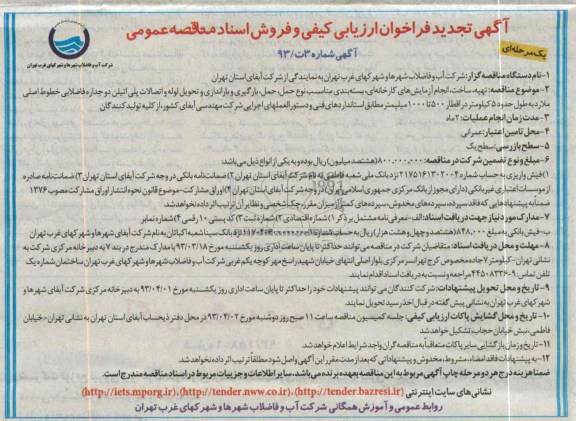 آگهی تجدید فراخوان ارزیابی کیفی و فروش اسناد مناقصه عمومی
یک مرحله‌ای
آگهی شماره ۳ت/۹۳
شرکت آب و فاضلاب شهرها و شهرکهای غرب تهران
۱-نام دستگاه مناقصه گزار: شرکت آب و فاضلاب شهرها و شهرکهای غرب تهران به نمایندگی از شرکت آبفای استان تهران
۲-موضوع مناقصه: تهیه، ساخت، انجام آزمایش های کارخانه‌ای، بسته‌بندی مناسب نوع حمل، حمل، بارگیری و باراندازی و تحویل لوله و اتصالات پلی اتیلن دو جداره فاضلابی خطوط اصلی
ملارد به طول حدود ۵ کیلومتر در اقطار ۵۰۰ تا ۱۰۰۰ میلیمتر مطابق استانداردهای فنی و دستورالعملهای اجرایی شرکت مهندسی آبفای کشور، از کلیه تولیدکنندگان
۳-مدت زمان انجام عملیات: ۲ماه
۴-محل تامین اعتبار: عمرانی
۵-سطح بازرسی: سطح یک
۶-مبلغ و نوع تضمین شرکت در مناقصه: ۸۰۰,۰۰۰,۰۰۰ (هشتصد میلیون) ریال بوده و به یکی از انواع ذیل می‌باشد:
۱)فیش واریزی به حساب شماره ۲۱۷۵۱۶۱۳۰۲۰۰۴ نزد بانک ملی شعبه فاطمی به نام شرکت آبفای استان تهران ۲)ضمانتنامه بانکی در وجه شرکت آبفای استان تهران ۳)ضمانت‌نامه صادره
از موسسات اعتباری غیربانکی دارای مجوز از بانک مرکزی جمهوری اسلامی ایران در وجه شرکت آبفای استان تهران ۴)اوراق مشارکت- موضوع قانون نحوه انتشار اوراق مشارکت مصوب ۱۳۷۶
ضمناً به پیشنهادهایی که فاقد سپرده، سپرده‌های مخدوش، سپرده‌های کمتر از میزان مقرر، چک شخصی و نظایر آن ترتیب اثر داده نخواهد شد.
۷-مدارک مورد نیاز جهت دریافت اسناد: الف-معرفی‌نامه مشتمل بر ذکر ۱) شماره اقتصادی ۲) شماره ثبت ۳) کد پستی ۱۰ رقمی ۴) شماره نمابر
ب-فیش بانکی به مبلغ ۸۴۸,۰۰۰ (هشتصد و چهل و هشت هزار) ریال به حساب شماره نزد بانک سینا شعبه اکباتان به نام شرکت آبفای شهرها و شهرکهای غرب تهران
۸-مهلت و محل دریافت اسناد: متقاضیان شرکت در مناقصه می توانند حداکثر تا پایان ساعت اداری روز یکشنبه مورخ ۹۳/۰۳/۱۸ با مدارک مندرج در بند ۷ به دبیرخانه مرکزی شرکت به
نشانی تهران-کیلومتر ۷ جاده مخصوص کرج تهرانسر مرکزی بلوار اصلی انتهای خیابان شهید راسخ مهر کوچه یکم غربی شرکت آب و فاضلاب شهرها و شهرکهای غرب تهران ساختمان شماره یک
تلفن تماس ۹-۴۴۵۰۸۳۳۶ مراجعه و نسبت به دریافت اسناد اقدام نمایند.
۹-تاریخ و محل تحویل پیشنهادات: شرکت کنندگان می توانند پیشنهادات خود را حداکثر تا پایان ساعت اداری روز یکشنبه مورخ ۹۳/۰۴/۰۱ به دبیرخانه مرکزی شرکت آبفای شهرها و
شهرکهای غرب تهران به نشانی پیش گفته در قبال اخذ رسید تحویل نمایند.
۱۰-تاریخ و محل گشایش پاکات ارزیابی کیفی: جلسه کمیسیون مناقصه ساعت ۱۱ صبح روز دوشنبه مورخ ۹۳/۰۴/۰۲ در محل دفتر ذیحساب آبفای استان تهران به نشانی تهران-خیابان
فاطمی نبش خیابان حجاب تشکیل خواهد شد
۱۱-تاریخ و زمان بازگشایی سایر پاکات متعاقباً به مناقصه گران واجد شرایط اعلام خواهد شد.
۱۲-به پیشنهادات فاقد امضاء، مشروط، مخدوش و پیشنهاداتی که بعد از مدت مقرر این آگهی واصل شود مطلقاً ترتیب اثر داده نخواهد شد.
ضمنا هزینه درج هر دو مرحله چاپ آگهی مربوط به این مناقصه بعهده برنده می‌باشد، سایر اطلاعات و جزییات مربوط در اسناد مناقصه مندرج است.
نشانی های سایت اینترنتی (http://iets.mporg.ir)،(http://tender.nww.co.ir)،(http://tender.bazresi.ir)
روابط عمومی و آموزش همگانی شرکت آب و فاضلاب شهرها و شهرکهای غرب تهران